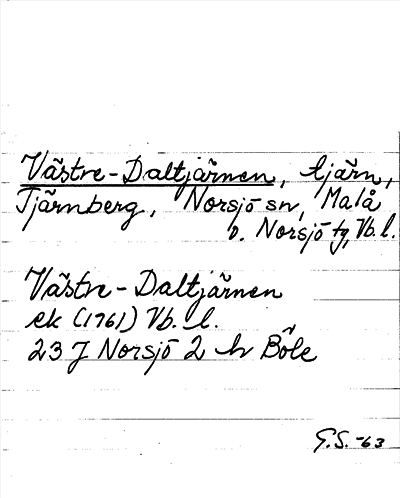 Västre-Daltjärnen, tjärn,
Tjärnberg, Norsjö sn, Malå
o. Norsjö tg, Vb. l.
Västre-Daltjärnen
ek (1761) Vb. l.
23 J Norsjö 2 h Böle
G.S. -63